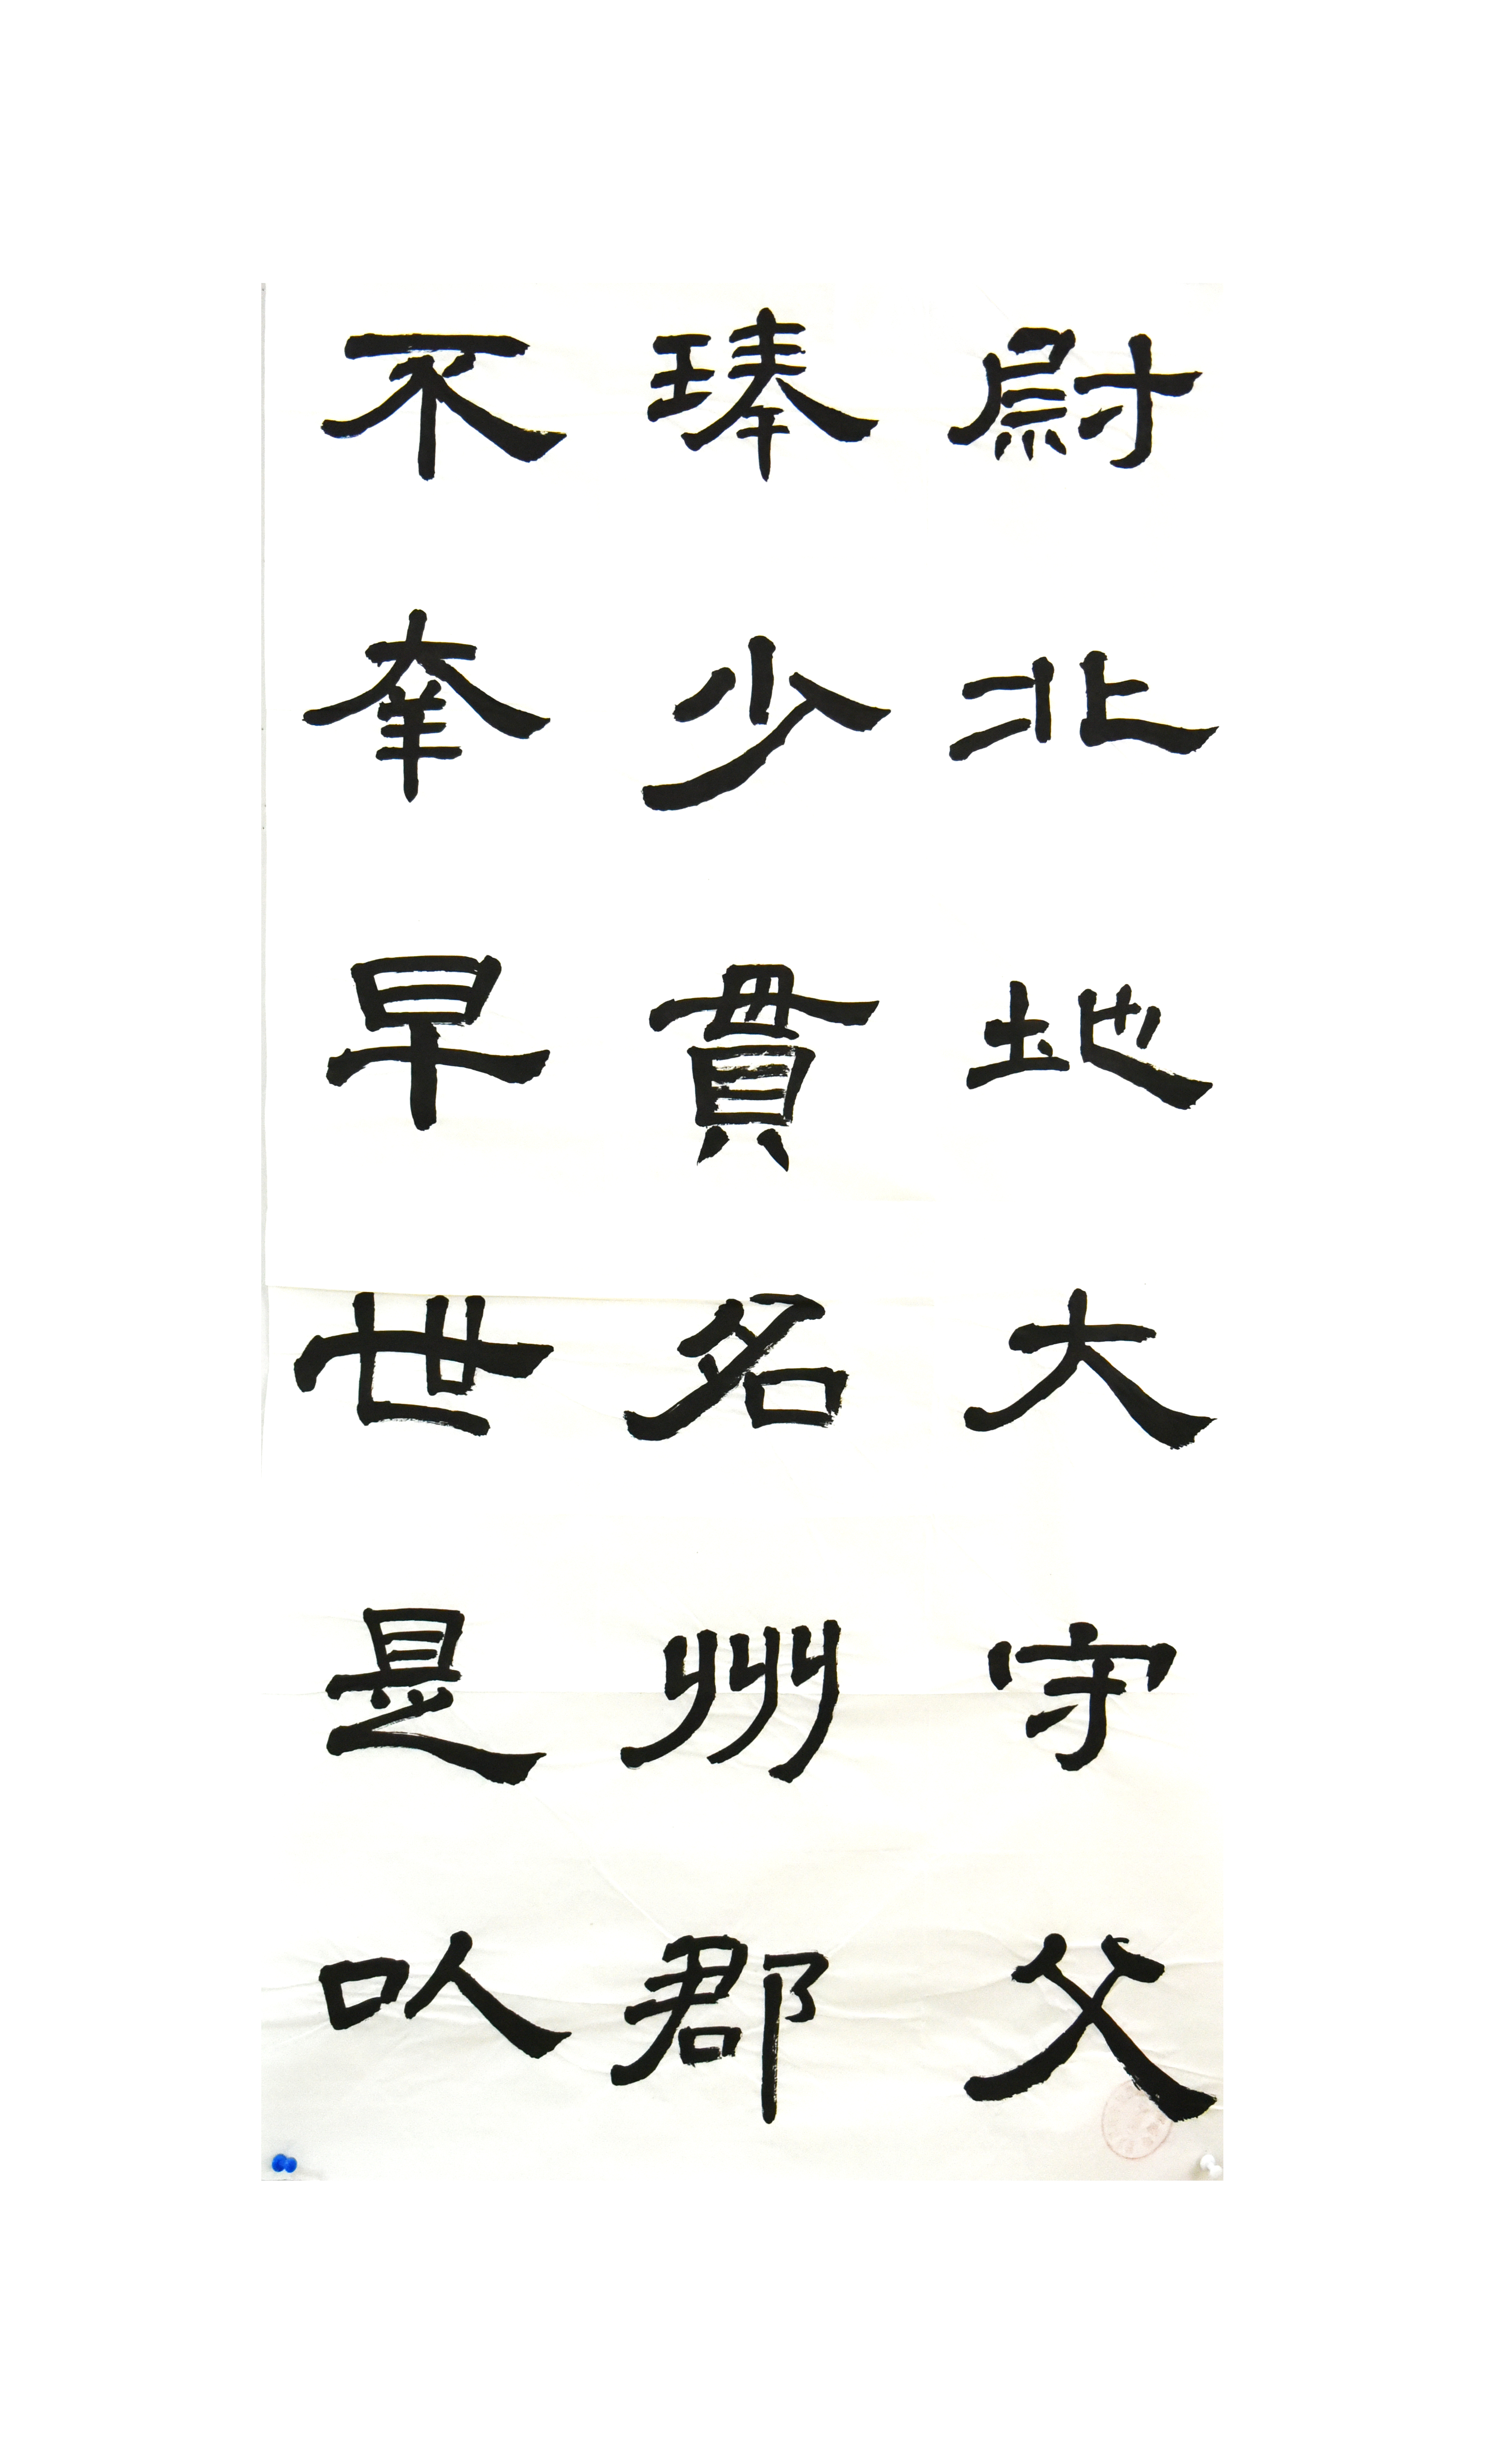 尉北地大守父
琫少貫名州郡
不幸早世是以